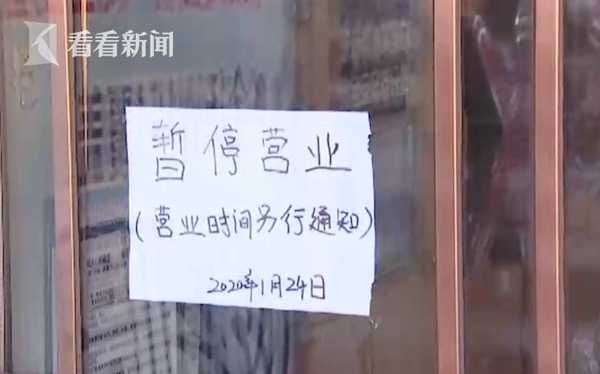 看看新闻
暂停营业
(营业时间另行通知)
2020年1月24日